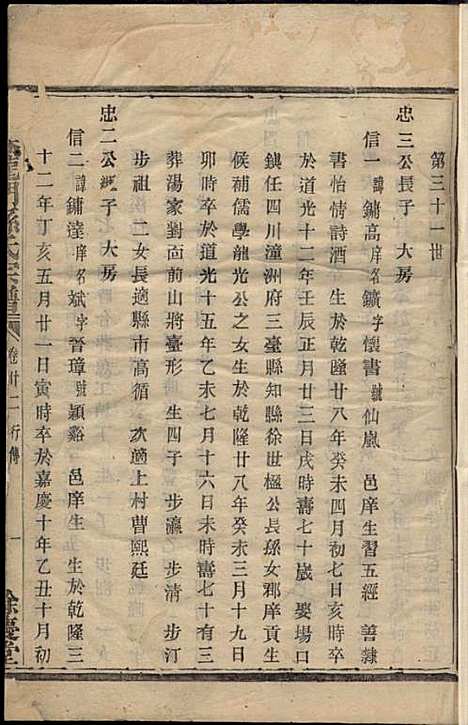 第三十一世
忠三公長子　大房
信一諱鏞高庠名鑛字懷書號仙嵐　邑庠生習五經　善隸
書怡情詩酒　生於乾隆廿八年癸未四月初七日亥時卒
於道光十二年壬辰正月廿三日戌時壽七十歲　娶塲口
鎮任四川潼洲府三臺縣知縣徐世楹公長孫女郡庠貢生
候補儒學龍光公之女生於乾隆廿八年癸未三月十九日
卯時卒於道光十五年乙未七月十六日未時壽七十有三
葬湯家剄面前山將臺形　生四子　步瀛　步清　步汀
步祖　二女長適縣市高循　次適上村曹熙廷
忠二公子　大房
信二諱鏞達庠名斌字晉璋號穎谿　邑庠生　生於乾隆三
十二年丁亥五月廿一日寅時卒於嘉慶十年乙丑十月初
孫氏宗譜　卷廿二行傳　一　餘慶堂